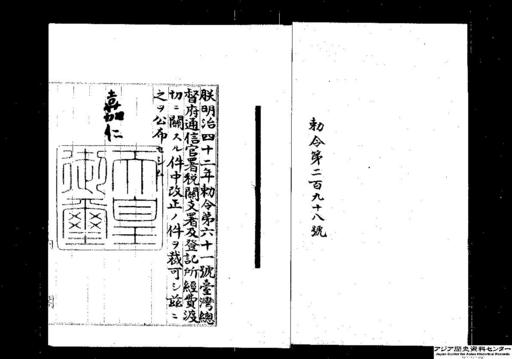 勅令第二百九十八號
朕明治四十二年勅令第六十一號臺灣總
督府通信官署税關支署及登記所經費渡
切ニ關スル件中改正ノ件ヲ裁可シ茲ニ
之ヲ公布セシム
嘉仁
天皇
御璽
アジア歴史資料センター
Japan Center for Asian Historical Records